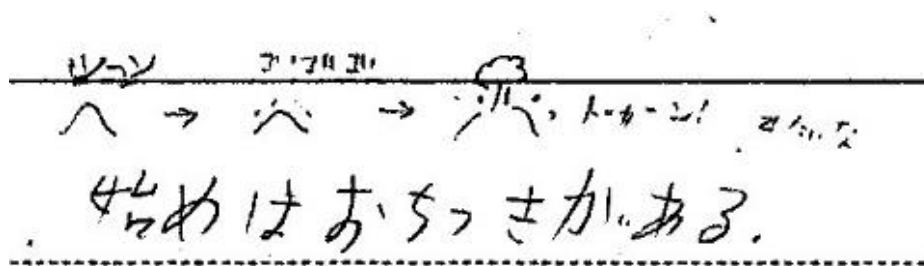 シーン ゴゴゴゴ
→ → ドーカーン! みたいな
始めはおちつきがある.